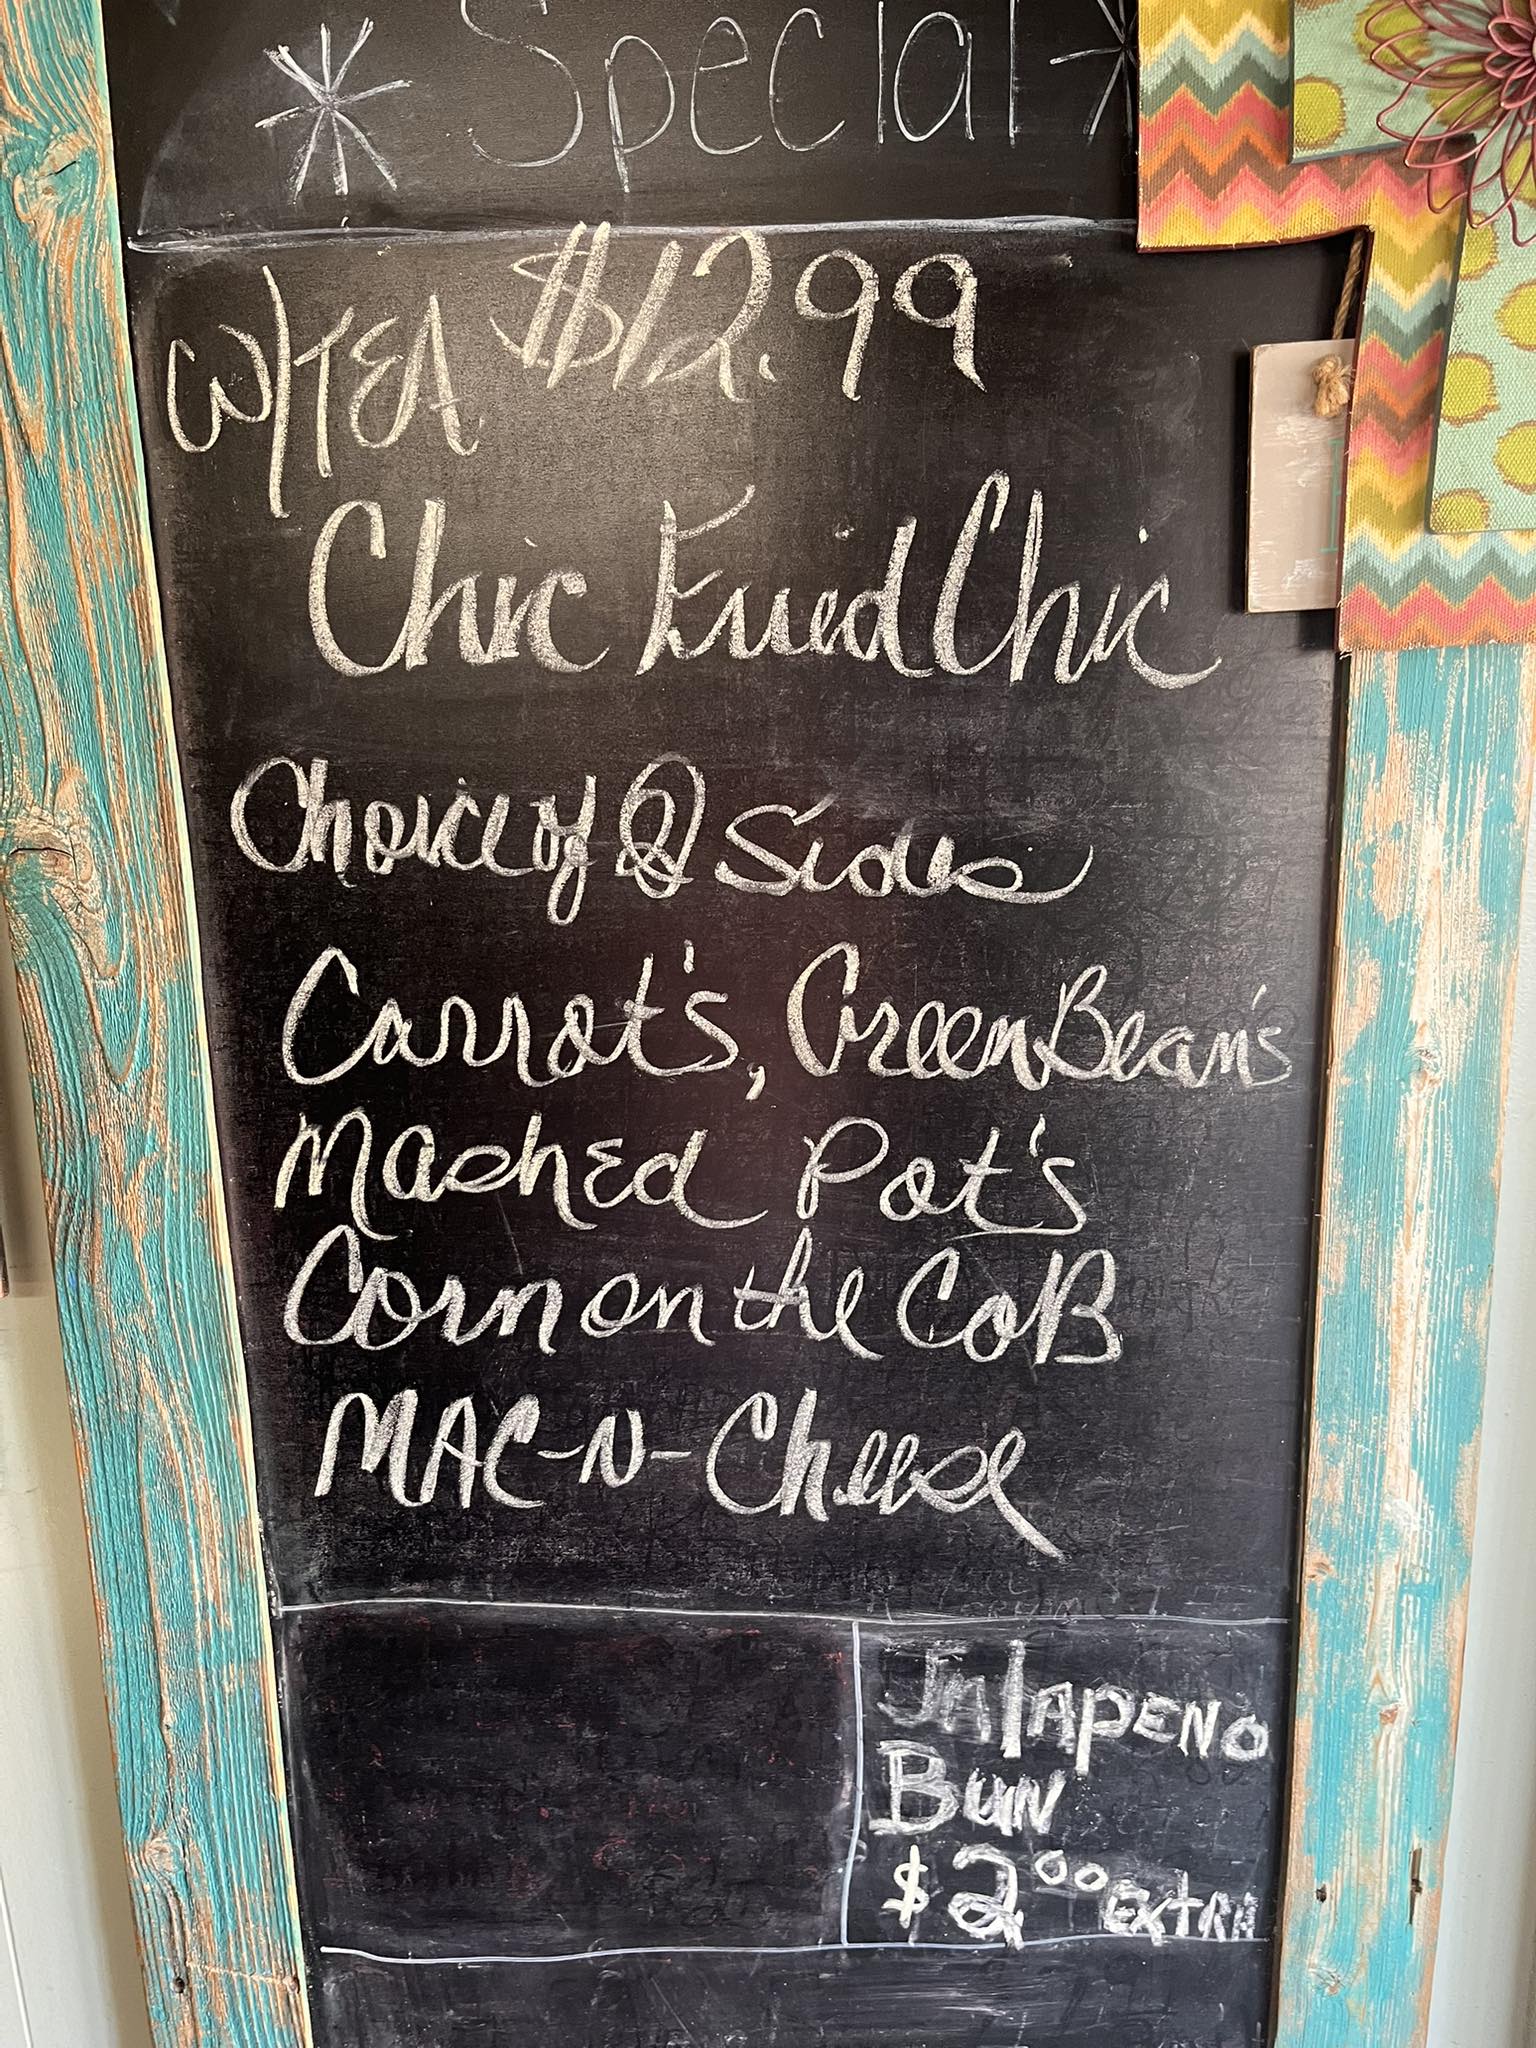 * Special *
W/TEA $12.99
Chic Fried Chic
Choice of 2 Sides
Carrot's, Green Bean's
Mashed Pot's
Corn on the CoB
MAC-N-Cheese
JALAPENO
BUN
$2.00 EXTRA